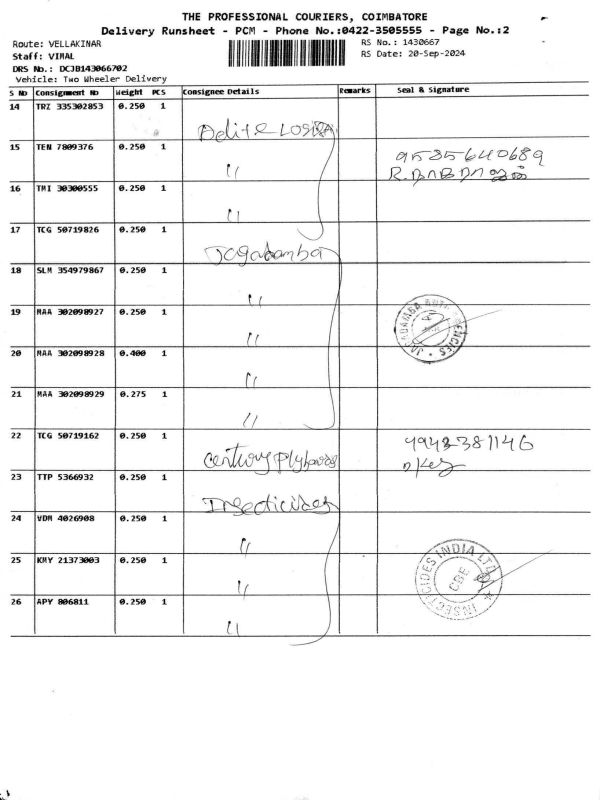 THE PROFESSIONAL COURIERS, COIMBATORE
Delivery Runsheet - PCM - Phone No.:0422-3505555 - Page No.:2
Route: VELLAKINAR
RS No.: 1430667
Staff: VIMAL
RS Date: 20-Sep-2024
DRS No.: DCJB143066702
Vehicle: Two Wheeler Delivery
S No Consignment No Weight PCS Consignee Details Remarks Seal & Signature
14 TRZ 335302853 0.250 1
Delite LOGISTA
15 TEN 7809376 0.250 1 9585640689
" R.நாகராஜன்
16 TMI 30300555 0.250 1
"
17 TCG 50719826 0.250 1
Jagatamba
18 SLM 354979867 0.250 1
"
19 MAA 302098927 0.250 1 JAGADAMBA AGENCIES
"
20 MAA 302098928 0.400 1
"
21 MAA 302098929 0.275 1
"
22 TCG 50719162 0.250 1 9943381146
Century Plyboards
23 TTP 5366932 0.250 1
Insecticides
24 VDM 4026908 0.250 1
"
25 KMY 21373003 0.250 1 INSECTICIDES INDIA LTD. CBE
"
26 APY 806811 0.250 1
"